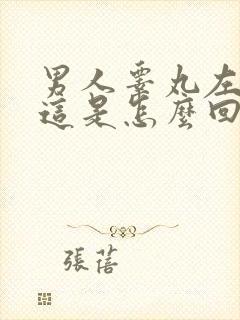 男人睪丸左
這是怎麼回
張蓓